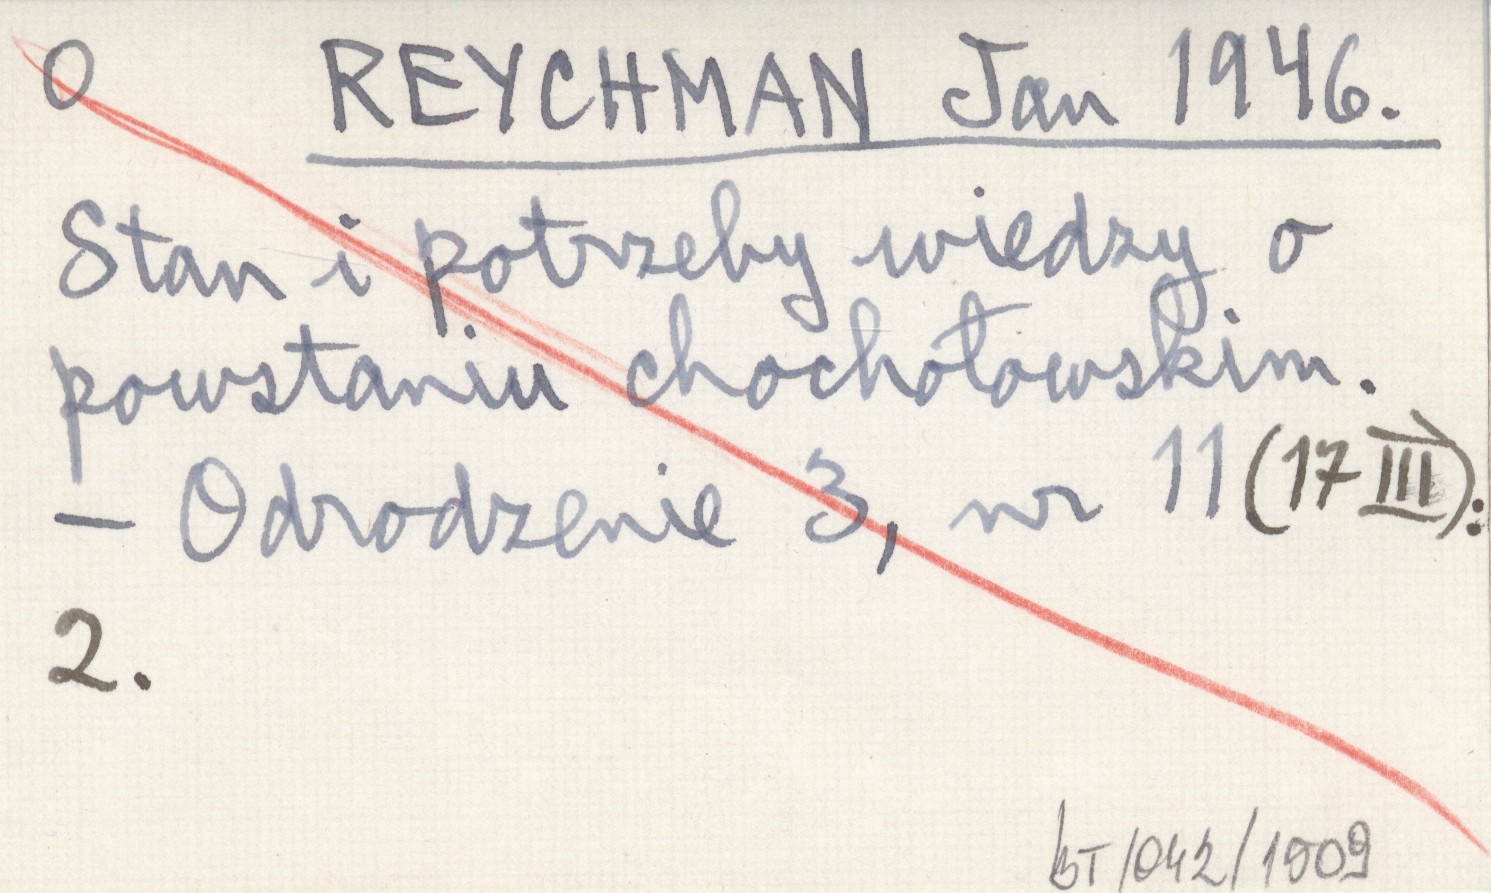 O REYCHMAN Jan 1946.
Stan i potrzeby wiedzy o
powstaniu chochołowskim.
— Odrodzenie 3, nr 11 (17 III):
2.
BT/042/1009